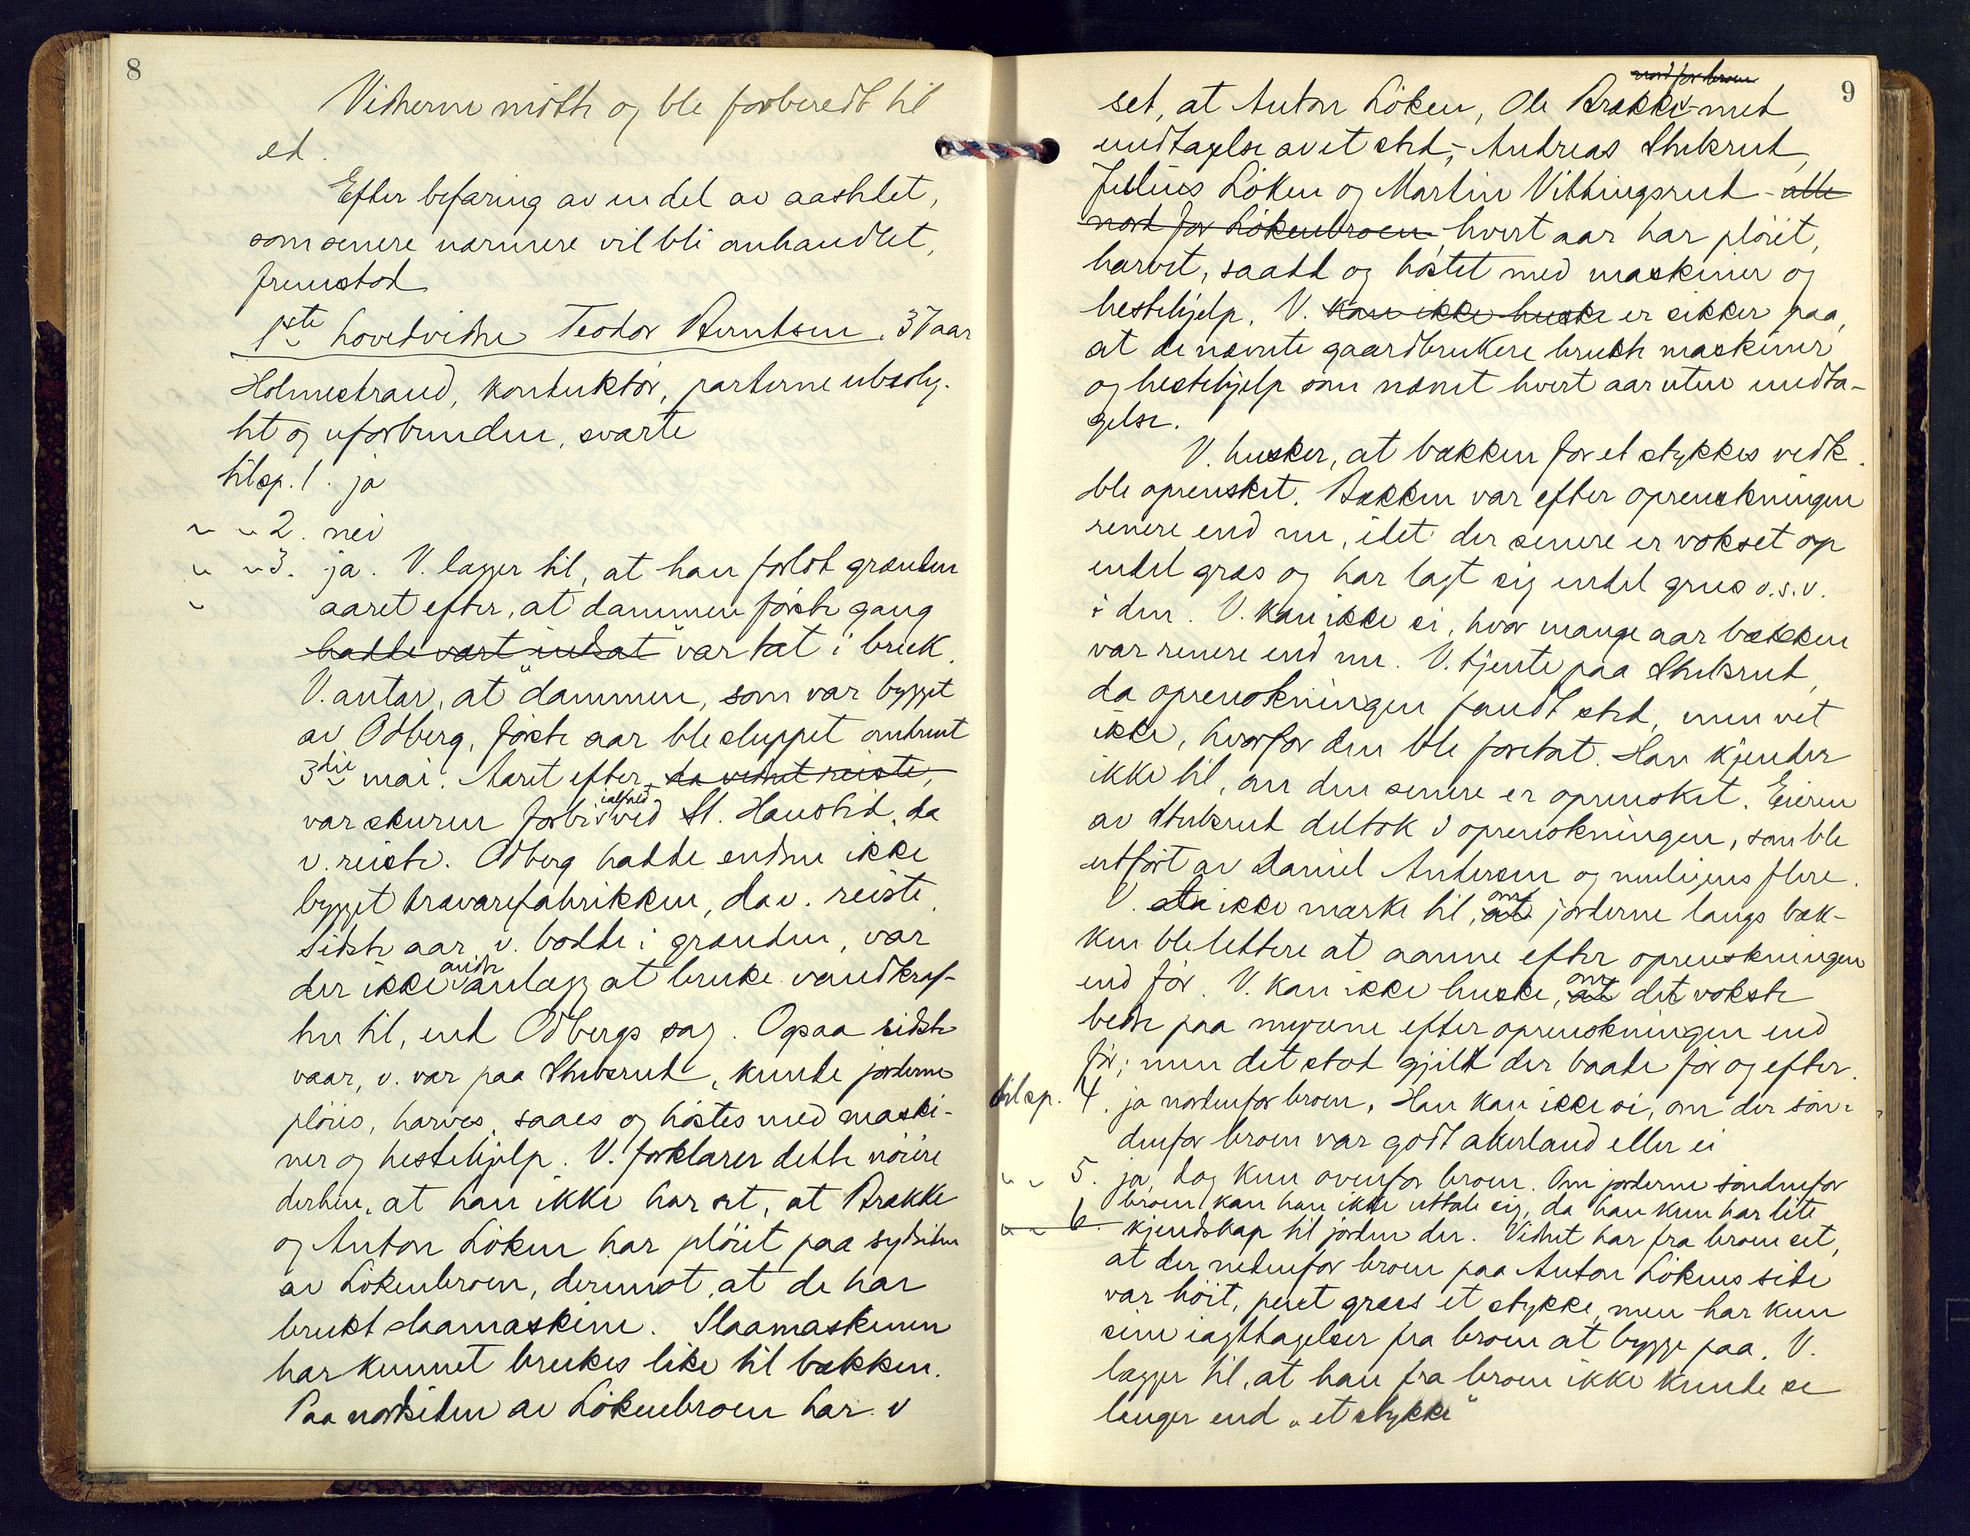 8
Vidnerne mötte og ble forberedt til
ed.
Efter befaring av en del av aastedet,
som senere nærmere vil bli anhandlet,
fremstod
1ste hovedvidne Teodor Berntsen, 37 aar
Holmestrand, konduktör, parterne ubeslæg-
tet og uforbunden, svarte
til sp. 1. ja
" " 2. nei
" " 3. ja. V. lægger til, at han forlot grænden
" aaret efter, at dammen förste gang
hadde vært indsat var tat i bruk.
V. antar, at dammen, som var bygget
av Odberg, förste aar ble sluppet omtrent
3die mai. Aaret efter, da vidnet reiste,
var skuren forbi ialfald ved St. Hanstid, da
v. reiste. Odberg hadde endnu ikke
bygget trævarefabrikken, da v. reiste.
Sidste aar v. bodde i grænden, var
der ikke andre anlægg at bruke vandkraf-
ten til, end Odbergs sag. Ogsaa sidste
vaar, v. var paa Stubsrud, kunde jorderne
plöies, harves, saaes og höstes med maski-
ner og hestehjelp. V. forklarer dette nöiere
derhen, at han ikke har set, at Brække
og Anton Löken har plöiet paa sydsiden
av Lökenbroen, derimot, at de har
brukt slaamaskine. Slaamaskinen
har kunnet brukes like til bækken.
Paa nordsiden av Lökenbroen har v
9
nord for broen
set, at Anton Löken, Ole Brække - med
undtagelse av et sted, - Andreas Stubsrud,
Julius Löken og Martin Vittingsrud - alle
nord for Lökenbroen hvert aar har plöiet,
harvet, saadd og höstet med maskiner og
hestehjelp. V. kan ikke huske er sikker paa,
at de nævnte gaardbrukere brukte maskiner
og hestehjelp som nævnt hvert aar uten undta-
gelse.
V. husker, at bækken for et stykkes vedk.
ble oprensket. Bækken var efter oprenskningen
renere end nu, idet der senere er vokset op
endel græs og har lagt sig endel grus o.s.v.
i den. V. kan ikke si, hvor mange aar bækken
var renere end nu. V. tjente paa Stubsrud,
da oprenskningen fandt sted, men vet
ikke, hvorfor den ble foretat. Han kjender
ikke til, om den senere er oprensket. Eieren
av Stubsrud deltok i oprenskningen, som ble
utfört av Daniel Andersen og muligens flere.
V. la ikke mærke til, at om jorderne langs bæk-
ken ble lettere at aanne efter oprenskningen
end för. V. kan ikke huske, at om det vokste
bedre paa myrene efter oprenskningen end
för; men det stod gjildt der baade för og efter.
til sp. 4. ja nordenfor broen. Han kan ikke si, om der sön-
denfor broen var godt akerland eller ei
" " 5. ja, dog kun ovenfor broen. Om jorderne söndenfor
broen kan han ikke uttale sig, da han kun har lite
" " 6. kjendskap til jorden der. Vidnet har fra broen set,
at der nedenfor broen paa Anton Lökens side
var höit, pent græs et stykke, men har kun
sine iagttagelser fra broen at bygge paa. V.
lægger til, at han fra broen ikke kunde se
længer end „et stykke"